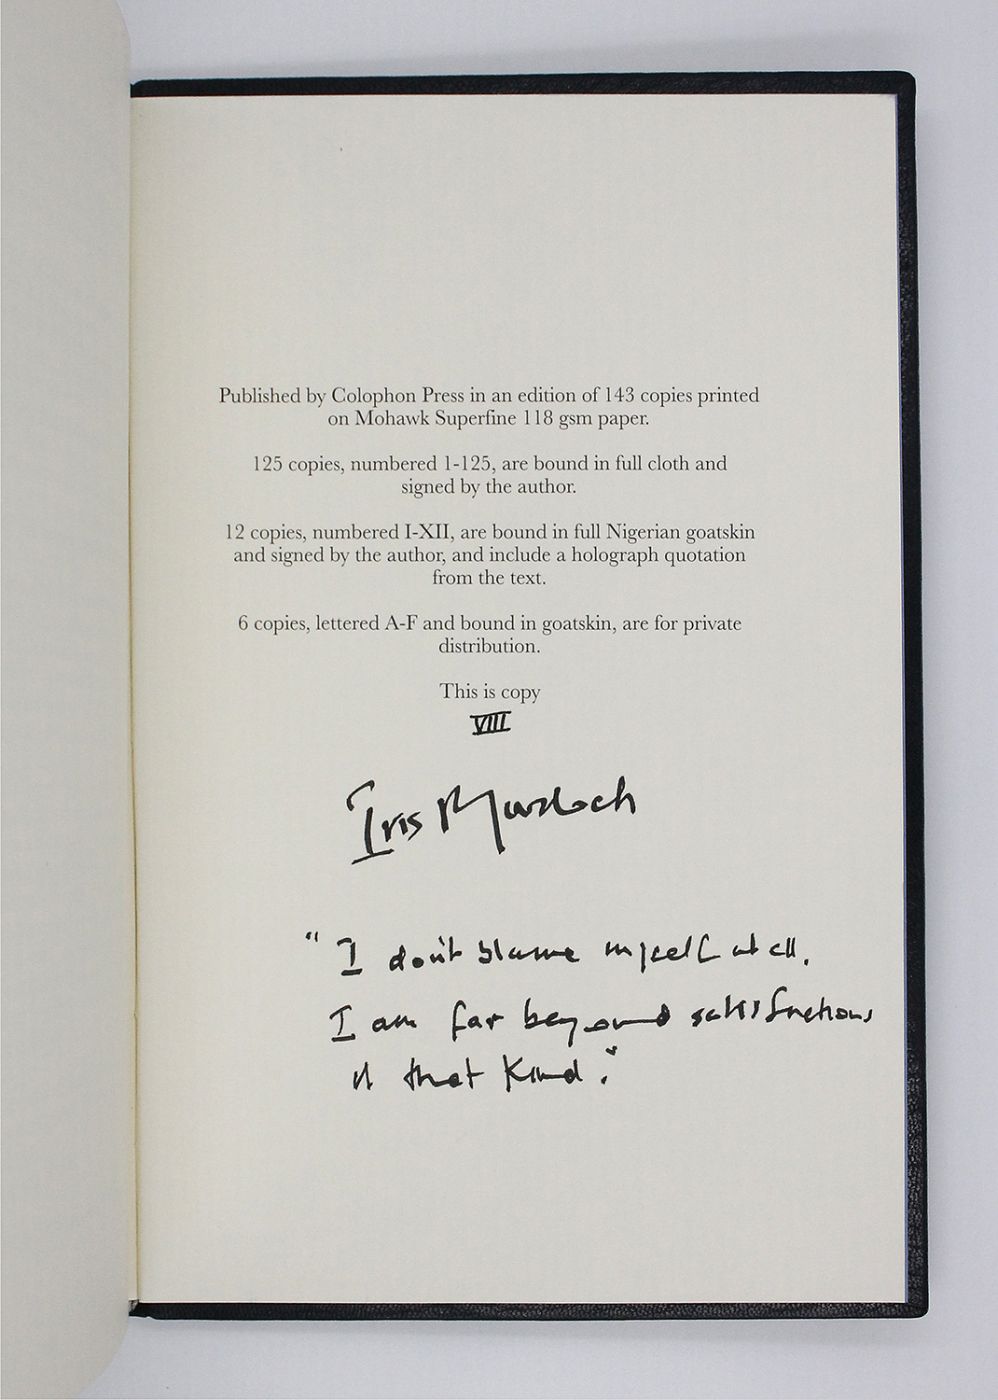 Published by Colophon Press in an edition of 143 copies printed
on Mohawk Superfine 118 gsm paper.
125 copies, numbered 1-125, are bound in full cloth and
signed by the author.
12 copies, numbered I-XII, are bound in full Nigerian goatskin
and signed by the author, and include a holograph quotation
from the text.
6 copies, lettered A-F and bound in goatskin, are for private
distribution.
This is copy
VIII
Iris Murdoch
" I don't blame myself at all.
I am far beyond satisfactions
of that kind."